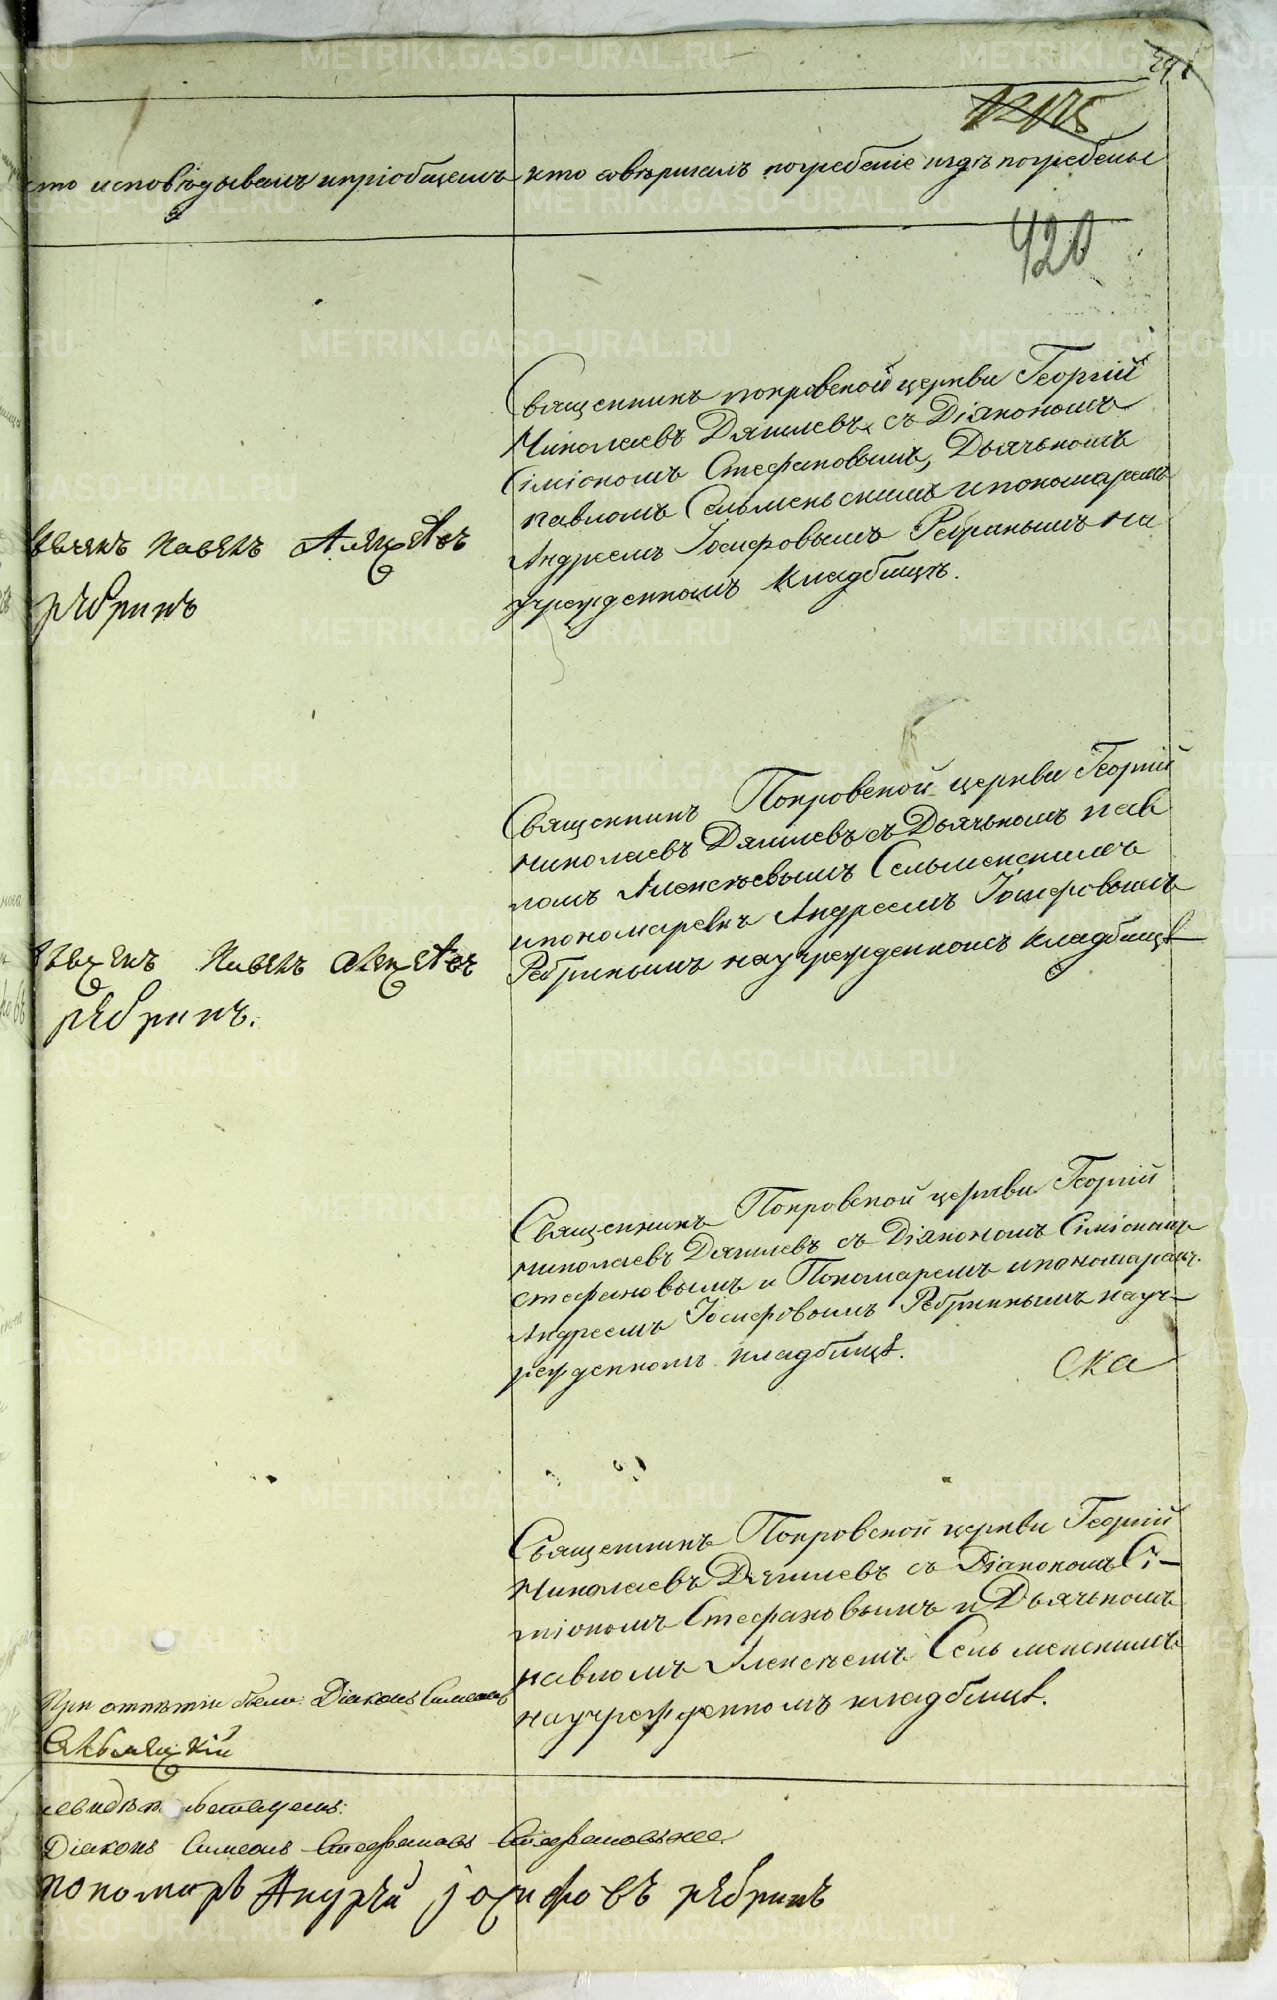 кто исповѣдывалъ ипріобщалъ
кто совѣршалъ погребеніе игдѣ погребены
420
Священникъ покровской церкви Георгій
Николаевъ Дягилевъ съ Діякономъ
Сімiономъ Стефановымъ, Дьячькомъ
павломъ Сельменьскимъ ипономаремъ
Андреемъ Іосифовымъ Ребринымъ на
учрежденномъ кладбищѣ.
Павелъ
рѣбринъ
Священникъ Покровской церкви Георгій
Николаевъ Дягилевъ съ Дьячькомъ пав
ломъ Алексѣевымъ Сельменскимъ
ипономаремъ Андреемъ Іосифовымъ
Ребринымъ научрежденномъ кладбищѣ
Павелъ
рѣбринъ.
Священникъ Покровской церкви Георгій
Николаевъ Дягилевъ съ Діякономъ Сіміономъ
Стефановымъ и Пономаремъ ипономаремъ
Андреемъ Іосифовымъ Ребринымъ науч-
режденномъ кладбищѣ.
Священникъ Покровской церкви Георгій
Николаевъ Дягилевъ съ Діакономъ Сі-
міономъ Стефановымъ и Дьячькомъ
павломъ Алексѣемъ Сельменскимъ
научрежденномъ кладбищѣ.
При отпѣтіи были Діаконъ Симеонъ
Діаконъ Симеонъ Стефановъ
пономарь Андрѣй іосифовъ рѣбринъ
METRIKI.GASO-URAL.RU